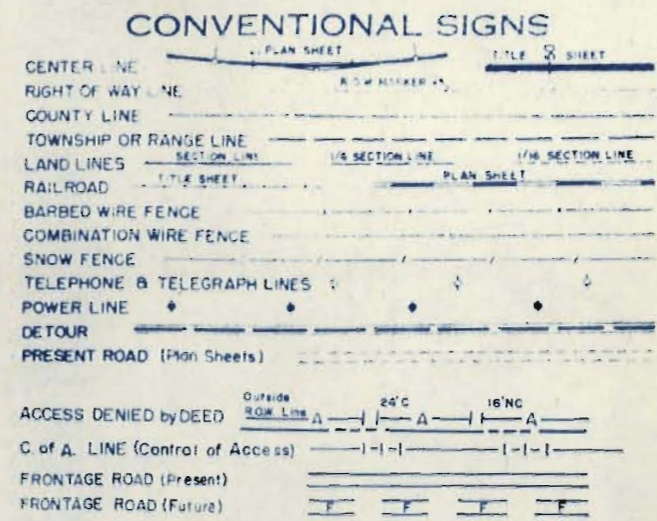 CONVENTIONAL SIGNS
PLAN SHEET
TITLE SHEET
CENTER LINE
R.O.W. MARKER
RIGHT OF WAY LINE
COUNTY LINE
TOWNSHIP OR RANGE LINE
LAND LINES SECTION LINE 1/4 SECTION LINE 1/16 SECTION LINE
RAILROAD TITLE SHEET PLAN SHEET
BARBED WIRE FENCE
COMBINATION WIRE FENCE
SNOW FENCE
TELEPHONE & TELEGRAPH LINES
POWER LINE
DETOUR
PRESENT ROAD (Plan Sheets)
Outside 24'C 16'NC
ACCESS DENIED by DEED R.O.W. Line A A A
C. of A. LINE (Control of Access)
FRONTAGE ROAD (Present)
FRONTAGE ROAD (Future) F F F F